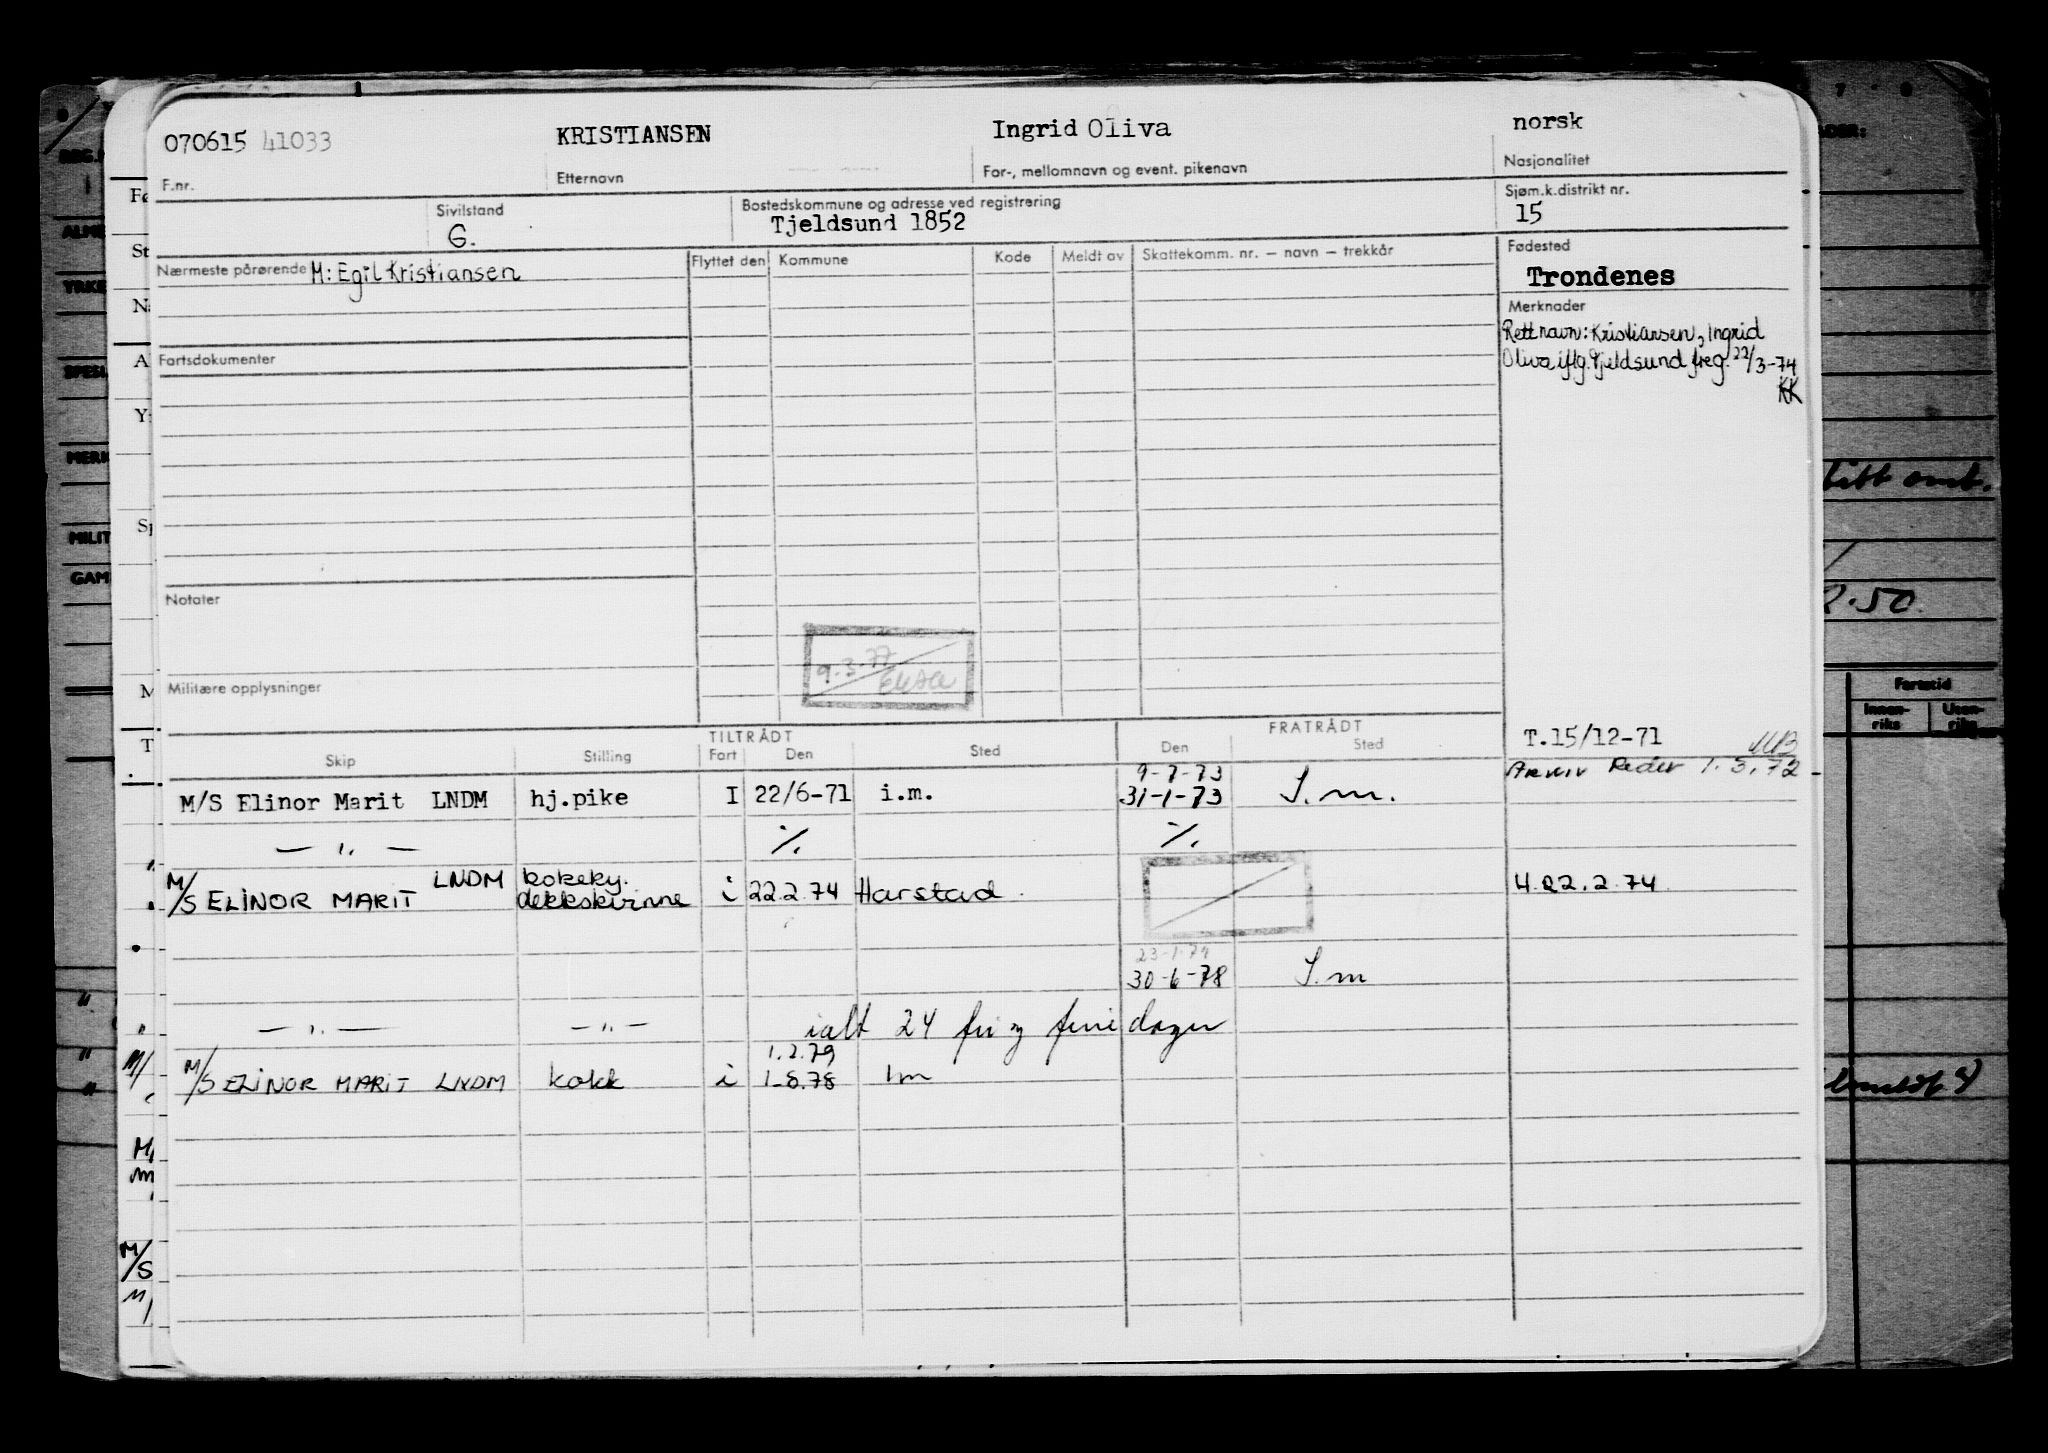 070615 41033 KRISTIANSEN Ingrid Oliva norsk
F.nr. Etternavn For-, mellomnavn og event. pikenavn Nasjonalitet
Sivilstand Bostedskommune og adresse ved registrering Sjøm.k.distrikt nr.
G. Tjeldsund 1852 15
Nærmeste pårørende M: Egil Kristiansen Flyttet den Kommune Kode Meldt av Skattekomm. nr. – navn – trekkår Fødested
Trondenes
Merknader
Rett navn: Kristiansen, Ingrid
Oliva iflg. Tjeldsund freg. 22/3-74
KK
Fartsdokumenter
Notater
9.3.77
Militære opplysninger
TILTRÅDT FRATRÅDT
Skip Stilling Fart Den Sted Den Sted
T.15/12-71 MB
Arkiv Reder 1.3.72
9-7-73
M/S Elinor Marit LNDM hj.pike I 22/6-71 i.m. 31-1-73 I.m.
— ". — ·/. ·/.
M/S ELINOR MARIT LNDM kokeky. dekkskvinne i 22.2.74 Harstad H.22.2.74
23-1-79
30-6-78 I.m
— ". — — ". — ialt 24 fri og ferie dager
1.2.79
M/S ELINOR MARIT LNDM kokk i 1-8.78 Im
REG.N
ALME
YRKE
SPESI
MERK
MILIT
GAM
Fø
St
N
A
Y
Sp
M
T
M/
M/S
M/
titt omt.
2.50
Fartstid
Innen-riks
Uten-riks